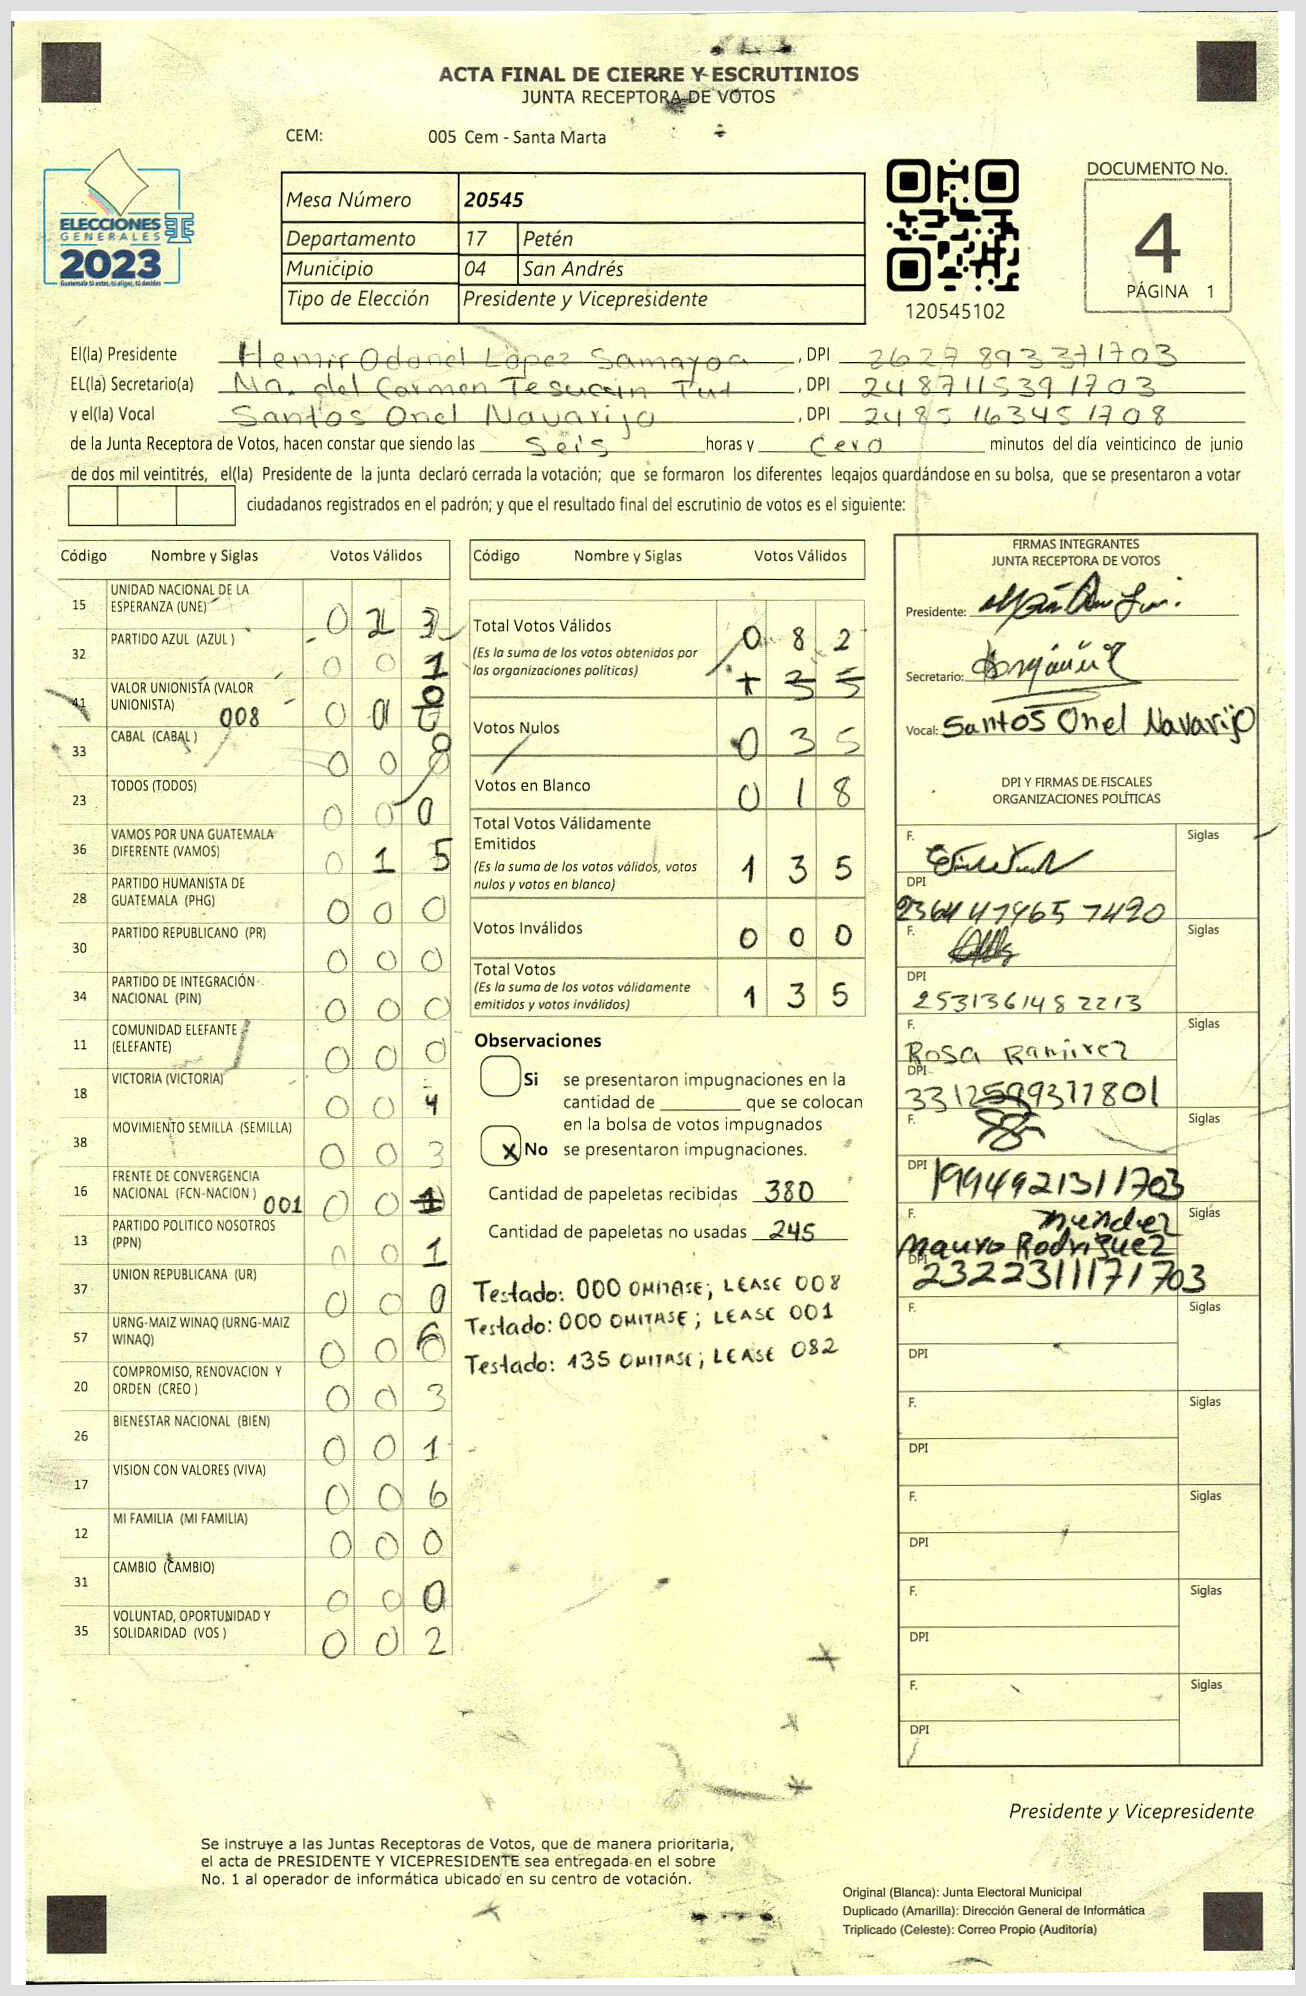 ACTA FINAL DE CIERRE Y ESCRUTINIOS
JUNTA RECEPTORA DE VOTOS
CEM: 005 Cem - Santa Marta
ELECCIONES
GENERALES
2023
Guatemala tú estas, tú eliges, tú decides
Mesa Número 20545
Departamento 17 Petén
Municipio 04 San Andrés
Tipo de Elección Presidente y Vicepresidente
120545102
DOCUMENTO No.
4
PÁGINA 1
El(la) Presidente Hemir Odonel López Samayoa , DPI 2627893371703
EL(la) Secretario(a) Ma. del Carmen Tesucún Tut , DPI 2487115391703
y el(la) Vocal Santos Onel Navarijo , DPI 2485163451708
de la Junta Receptora de Votos, hacen constar que siendo las Seis horas y Cero minutos del día veinticinco de junio
de dos mil veintitrés, el(la) Presidente de la junta declaró cerrada la votación; que se formaron los diferentes legajos guardándose en su bolsa, que se presentaron a votar
ciudadanos registrados en el padrón; y que el resultado final del escrutinio de votos es el siguiente:
Código Nombre y Siglas Votos Válidos
15 UNIDAD NACIONAL DE LA
ESPERANZA (UNE) 0 2 3
32 PARTIDO AZUL (AZUL ) 0 0 1
41 VALOR UNIONISTA (VALOR
UNIONISTA) 008 0 0 0
33 CABAL (CABAL ) 0 0 8
23 TODOS (TODOS) 0 0 0
36 VAMOS POR UNA GUATEMALA
DIFERENTE (VAMOS) 0 1 5
28 PARTIDO HUMANISTA DE
GUATEMALA (PHG) 0 0 0
30 PARTIDO REPUBLICANO (PR) 0 0 0
34 PARTIDO DE INTEGRACIÓN
NACIONAL (PIN) 0 0 0
11 COMUNIDAD ELEFANTE
(ELEFANTE) 0 0 0
18 VICTORIA (VICTORIA) 0 0 4
38 MOVIMIENTO SEMILLA (SEMILLA) 0 0 3
16 FRENTE DE CONVERGENCIA
NACIONAL (FCN-NACION ) 001 0 0 1
13 PARTIDO POLITICO NOSOTROS
(PPN) 0 0 1
37 UNION REPUBLICANA (UR) 0 0 0
57 URNG-MAIZ WINAQ (URNG-MAIZ
WINAQ) 0 0 6
20 COMPROMISO, RENOVACION Y
ORDEN (CREO ) 0 0 3
26 BIENESTAR NACIONAL (BIEN) 0 0 1
17 VISION CON VALORES (VIVA) 0 0 6
12 MI FAMILIA (MI FAMILIA) 0 0 0
31 CAMBIO (CAMBIO) 0 0 0
35 VOLUNTAD, OPORTUNIDAD Y
SOLIDARIDAD (VOS ) 0 0 2
Código Nombre y Siglas Votos Válidos
Total Votos Válidos 0 8 2
(Es la suma de los votos obtenidos por
las organizaciones políticas)
Votos Nulos 0 3 5
Votos en Blanco 0 1 8
Total Votos Válidamente
Emitidos 1 3 5
(Es la suma de los votos válidos, votos
nulos y votos en blanco)
Votos Inválidos 0 0 0
Total Votos 1 3 5
(Es la suma de los votos válidamente
emitidos y votos inválidos)
Observaciones
Si se presentaron impugnaciones en la
cantidad de ________ que se colocan
en la bolsa de votos impugnados
X No se presentaron impugnaciones.
Cantidad de papeletas recibidas 380
Cantidad de papeletas no usadas 245
Testado: 000 OMITASE; LEASE 008
Testado: 000 OMITASE; LEASE 001
Testado: 135 OMITASE; LEASE 082
FIRMAS INTEGRANTES
JUNTA RECEPTORA DE VOTOS
Presidente:
Secretario:
Vocal: Santos Onel Navarijo
DPI Y FIRMAS DE FISCALES
ORGANIZACIONES POLÍTICAS
F. Siglas
DPI
2364479657420
F. Siglas
DPI
2531361482213
F. Siglas
Rosa Ramirez
DPI
3312599377801
F. Siglas
DPI 1994921311703
F. Siglas
mendez
Mauro Rodriguez
DPI
2322311171703
F. Siglas
DPI
F. Siglas
DPI
F. Siglas
DPI
F. Siglas
DPI
F. Siglas
DPI
Presidente y Vicepresidente
Se instruye a las Juntas Receptoras de Votos, que de manera prioritaria,
el acta de PRESIDENTE Y VICEPRESIDENTE sea entregada en el sobre
No. 1 al operador de informática ubicado en su centro de votación.
Original (Blanca): Junta Electoral Municipal
Duplicado (Amarilla): Dirección General de Informática
Triplicado (Celeste): Correo Propio (Auditoría)